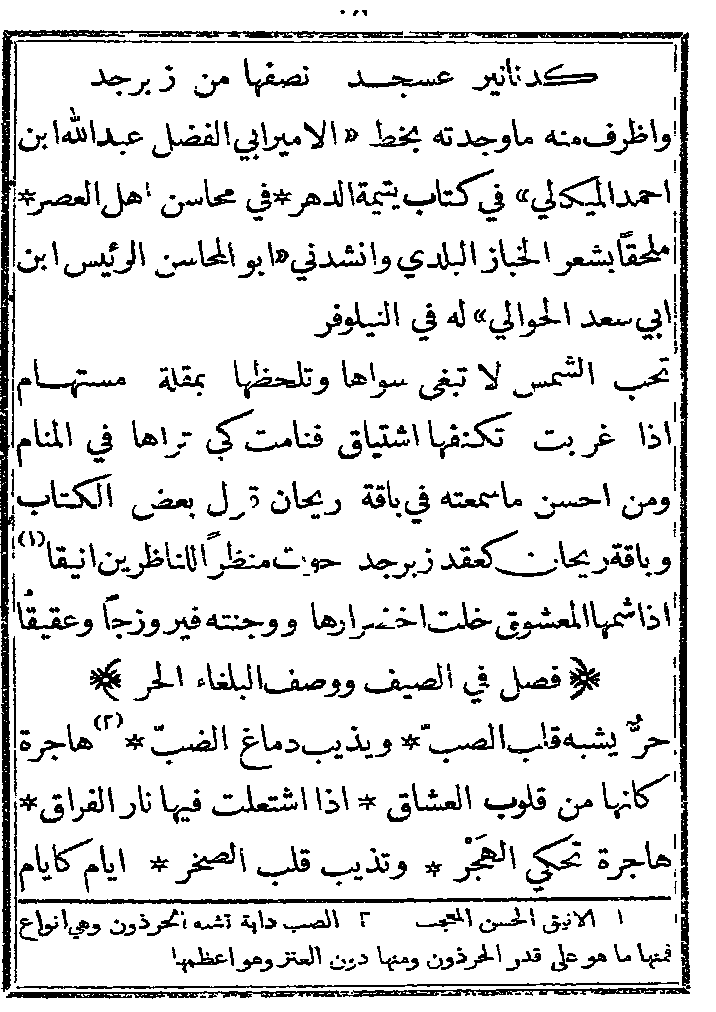 كدنانير عسجد نصفها من زبرجد
واظرف منه ما وجدته بخط «الامير ابي الفضل عبدالله ابن
احمد الميكالي» في كتاب يتيمة الدهر * في محاسن اهل العصر *
ملحقاً بشعر الخباز البلدي وانشدني «ابو المحاسن الرئيس ابن
ابي سعد الحوالي» له في النيلوفر
تحب الشمس لا تبغى سواها وتلحظها بمقلة مستهام
اذا غربت تكنفها اشتياق فنامت كي تراها في المنام
ومن احسن ما سمعته في باقة ريحان قول بعض الكتاب
وباقة ريحان كعقد زبرجد حوت منظراً للناظرين انيقا (١)
اذا شمها المعشوق خلت اخضرارها ووجنته فيروزجاً وعقيقاً
﴿ فصل في الصيف ووصف البلغاء الحر ﴾
حرٌّ يشبه قلب الصبّ * ويذيب دماغ الضبّ (٢) * هاجرة
كانها من قلوب العشاق * اذا اشتعلت فيها نار الفراق *
هاجرة تحكي الهَجْر * وتذيب قلب الصخر * ايام كايام
١ الانيق الحسن المعجب ٢ الضب دابة تشبه الحرذون وهي انواع
فمنها ما هو على قدر الحرذون ومنها دون العنز وهو اعظمها